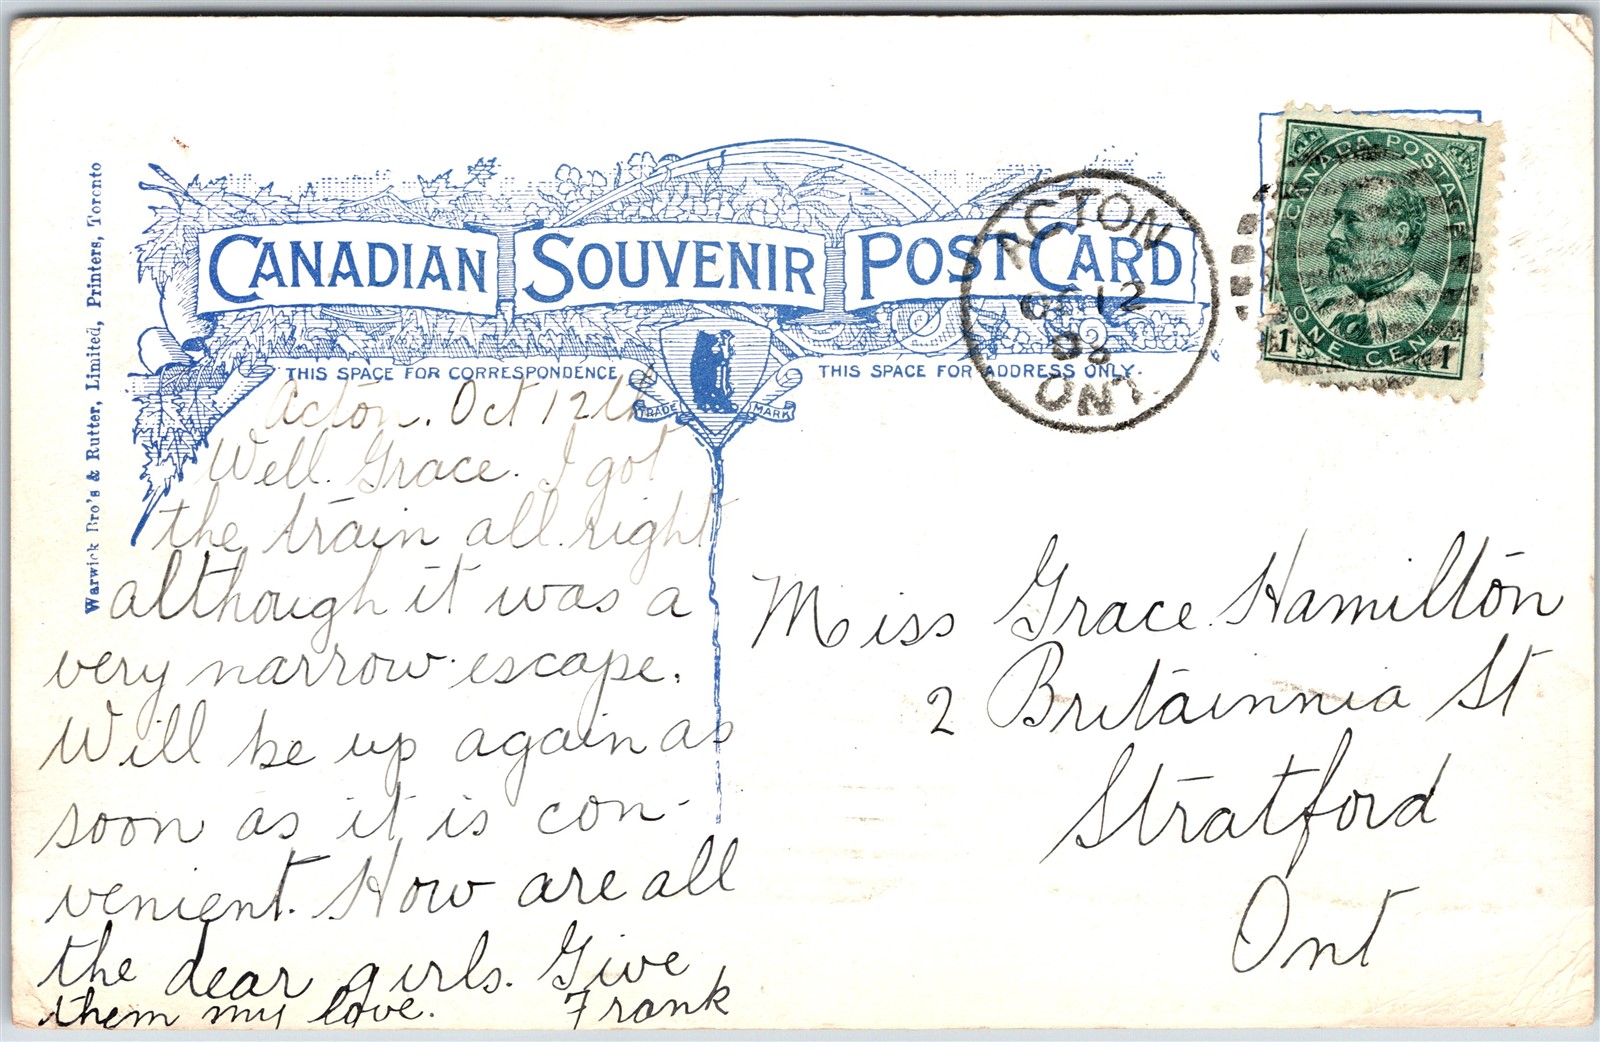 CANADIAN SOUVENIR POST CARD
THIS SPACE FOR CORRESPONDENCE
THIS SPACE FOR ADDRESS ONLY.
TRADE MARK
Warwick Bro's & Rutter, Limited, Printers, Toronto
ACTON
OC 12
08
ONT.
CANADA POSTAGE
1 ONE CENT 1
Acton. Oct 12th
Well. Grace. I got
the train all right
although it was a
very narrow escape.
Will be up again as
soon as it is con-
venient. How are all
the dear girls. Give
them my love. Frank
Miss Grace Hamilton
2 Britainnia St
Stratford
Ont